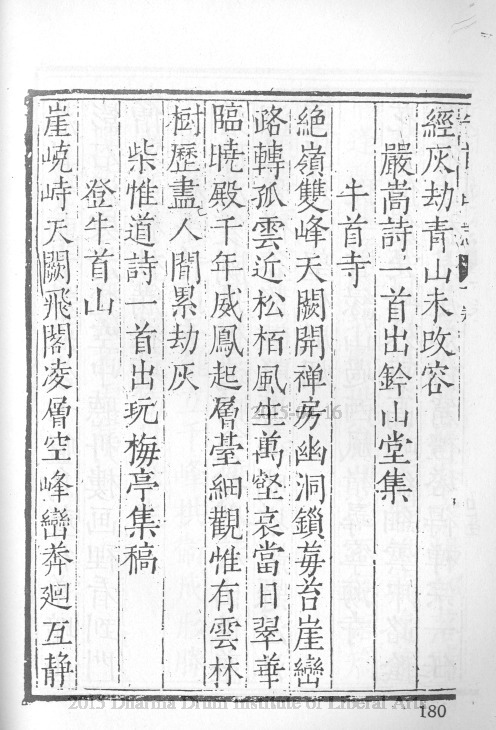 經灰劫青山未改容
嚴嵩詩一首出鈐山堂集
牛首寺
絶嶺雙峰天闕開禅房幽洞鎖莓苔崖巒
路轉孤雲近松栢風生萬壑哀當日翠華
臨曉殿千年威鳳起層䑓細觀惟有雲林
樹歷盡人間累劫灰
柴惟道詩一首出玩梅亭集稿
登牛首山
崖嶢峙天闕飛閣凌層空峰巒莽廻互静
2015-04-16
2013 Dharma Drum Institute of Liberal Arts
180